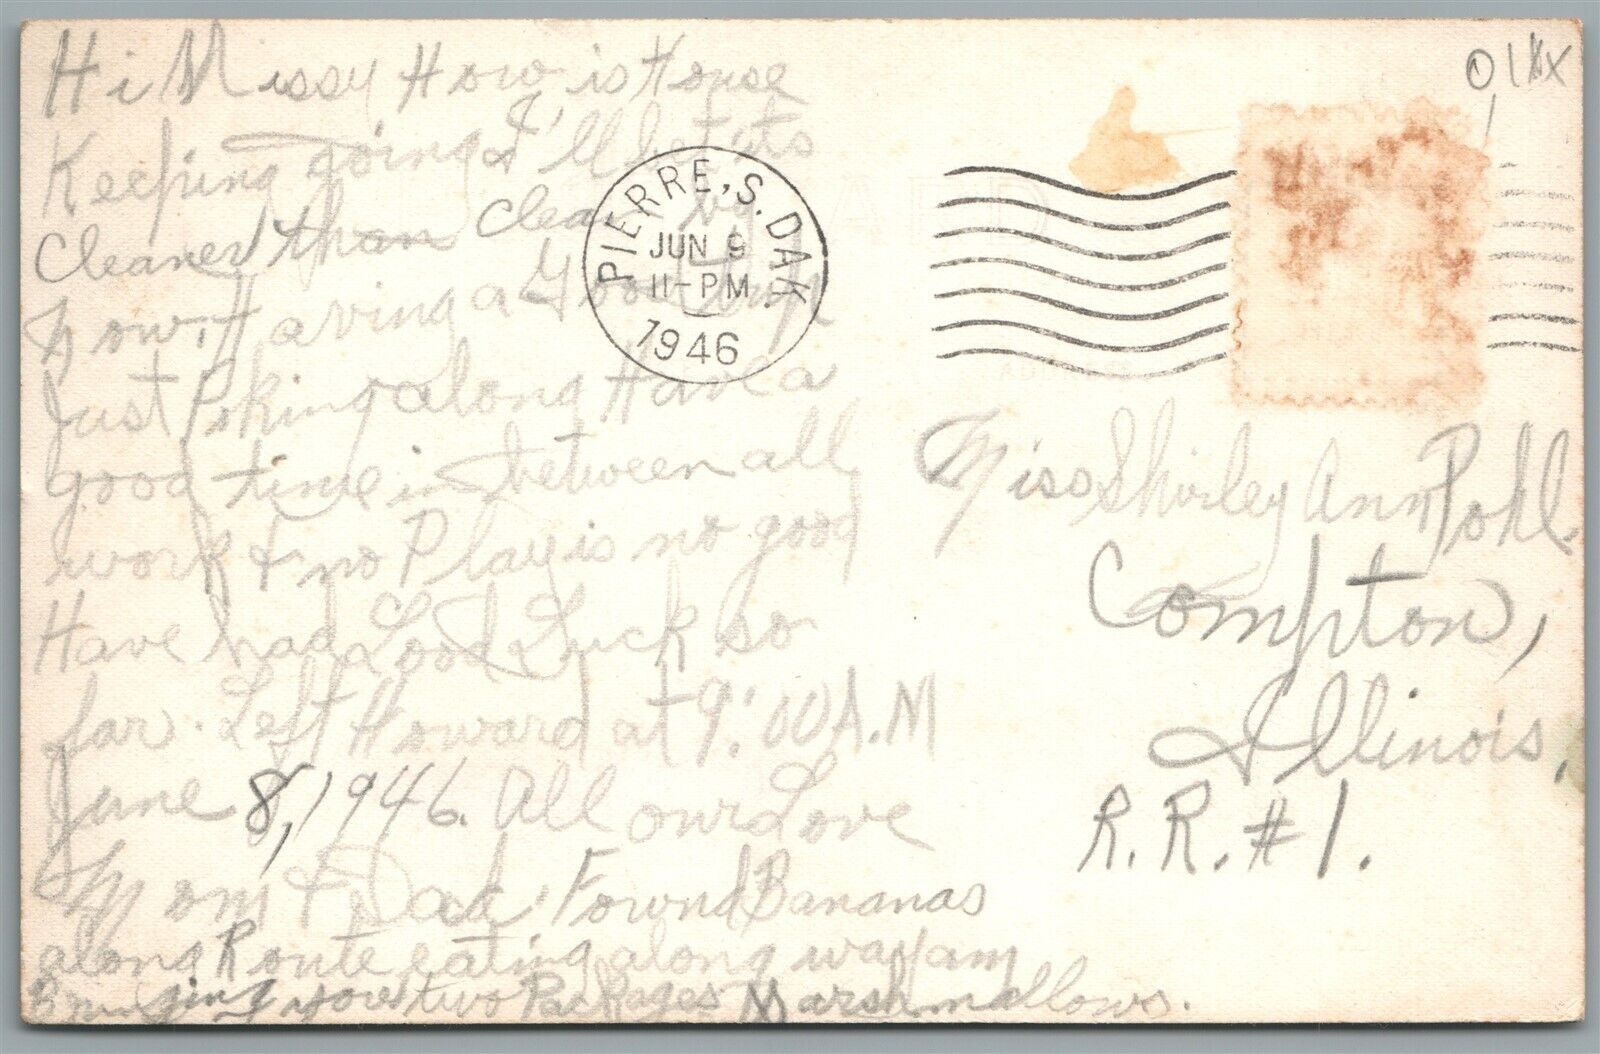 Hi Missy How is House
Keeping going I'll bet its
Cleaner than Clean by
now. Having a Good trip
Just Piking along Have a
good time in between all
work & no Play is no good
Have had Good Luck so
far. Left Howard at 9:00 A.M
June 8, 1946. All our Love
Mom & Dad. Fownd Bananas
along Route eating along way am
Bringing you two Packages Marshmallows.
PIERRE, S. DAK.
JUN 9
11-PM
1946
Miss Shirley Ann Pohl
Compton,
Illinois.
R.R. #1.